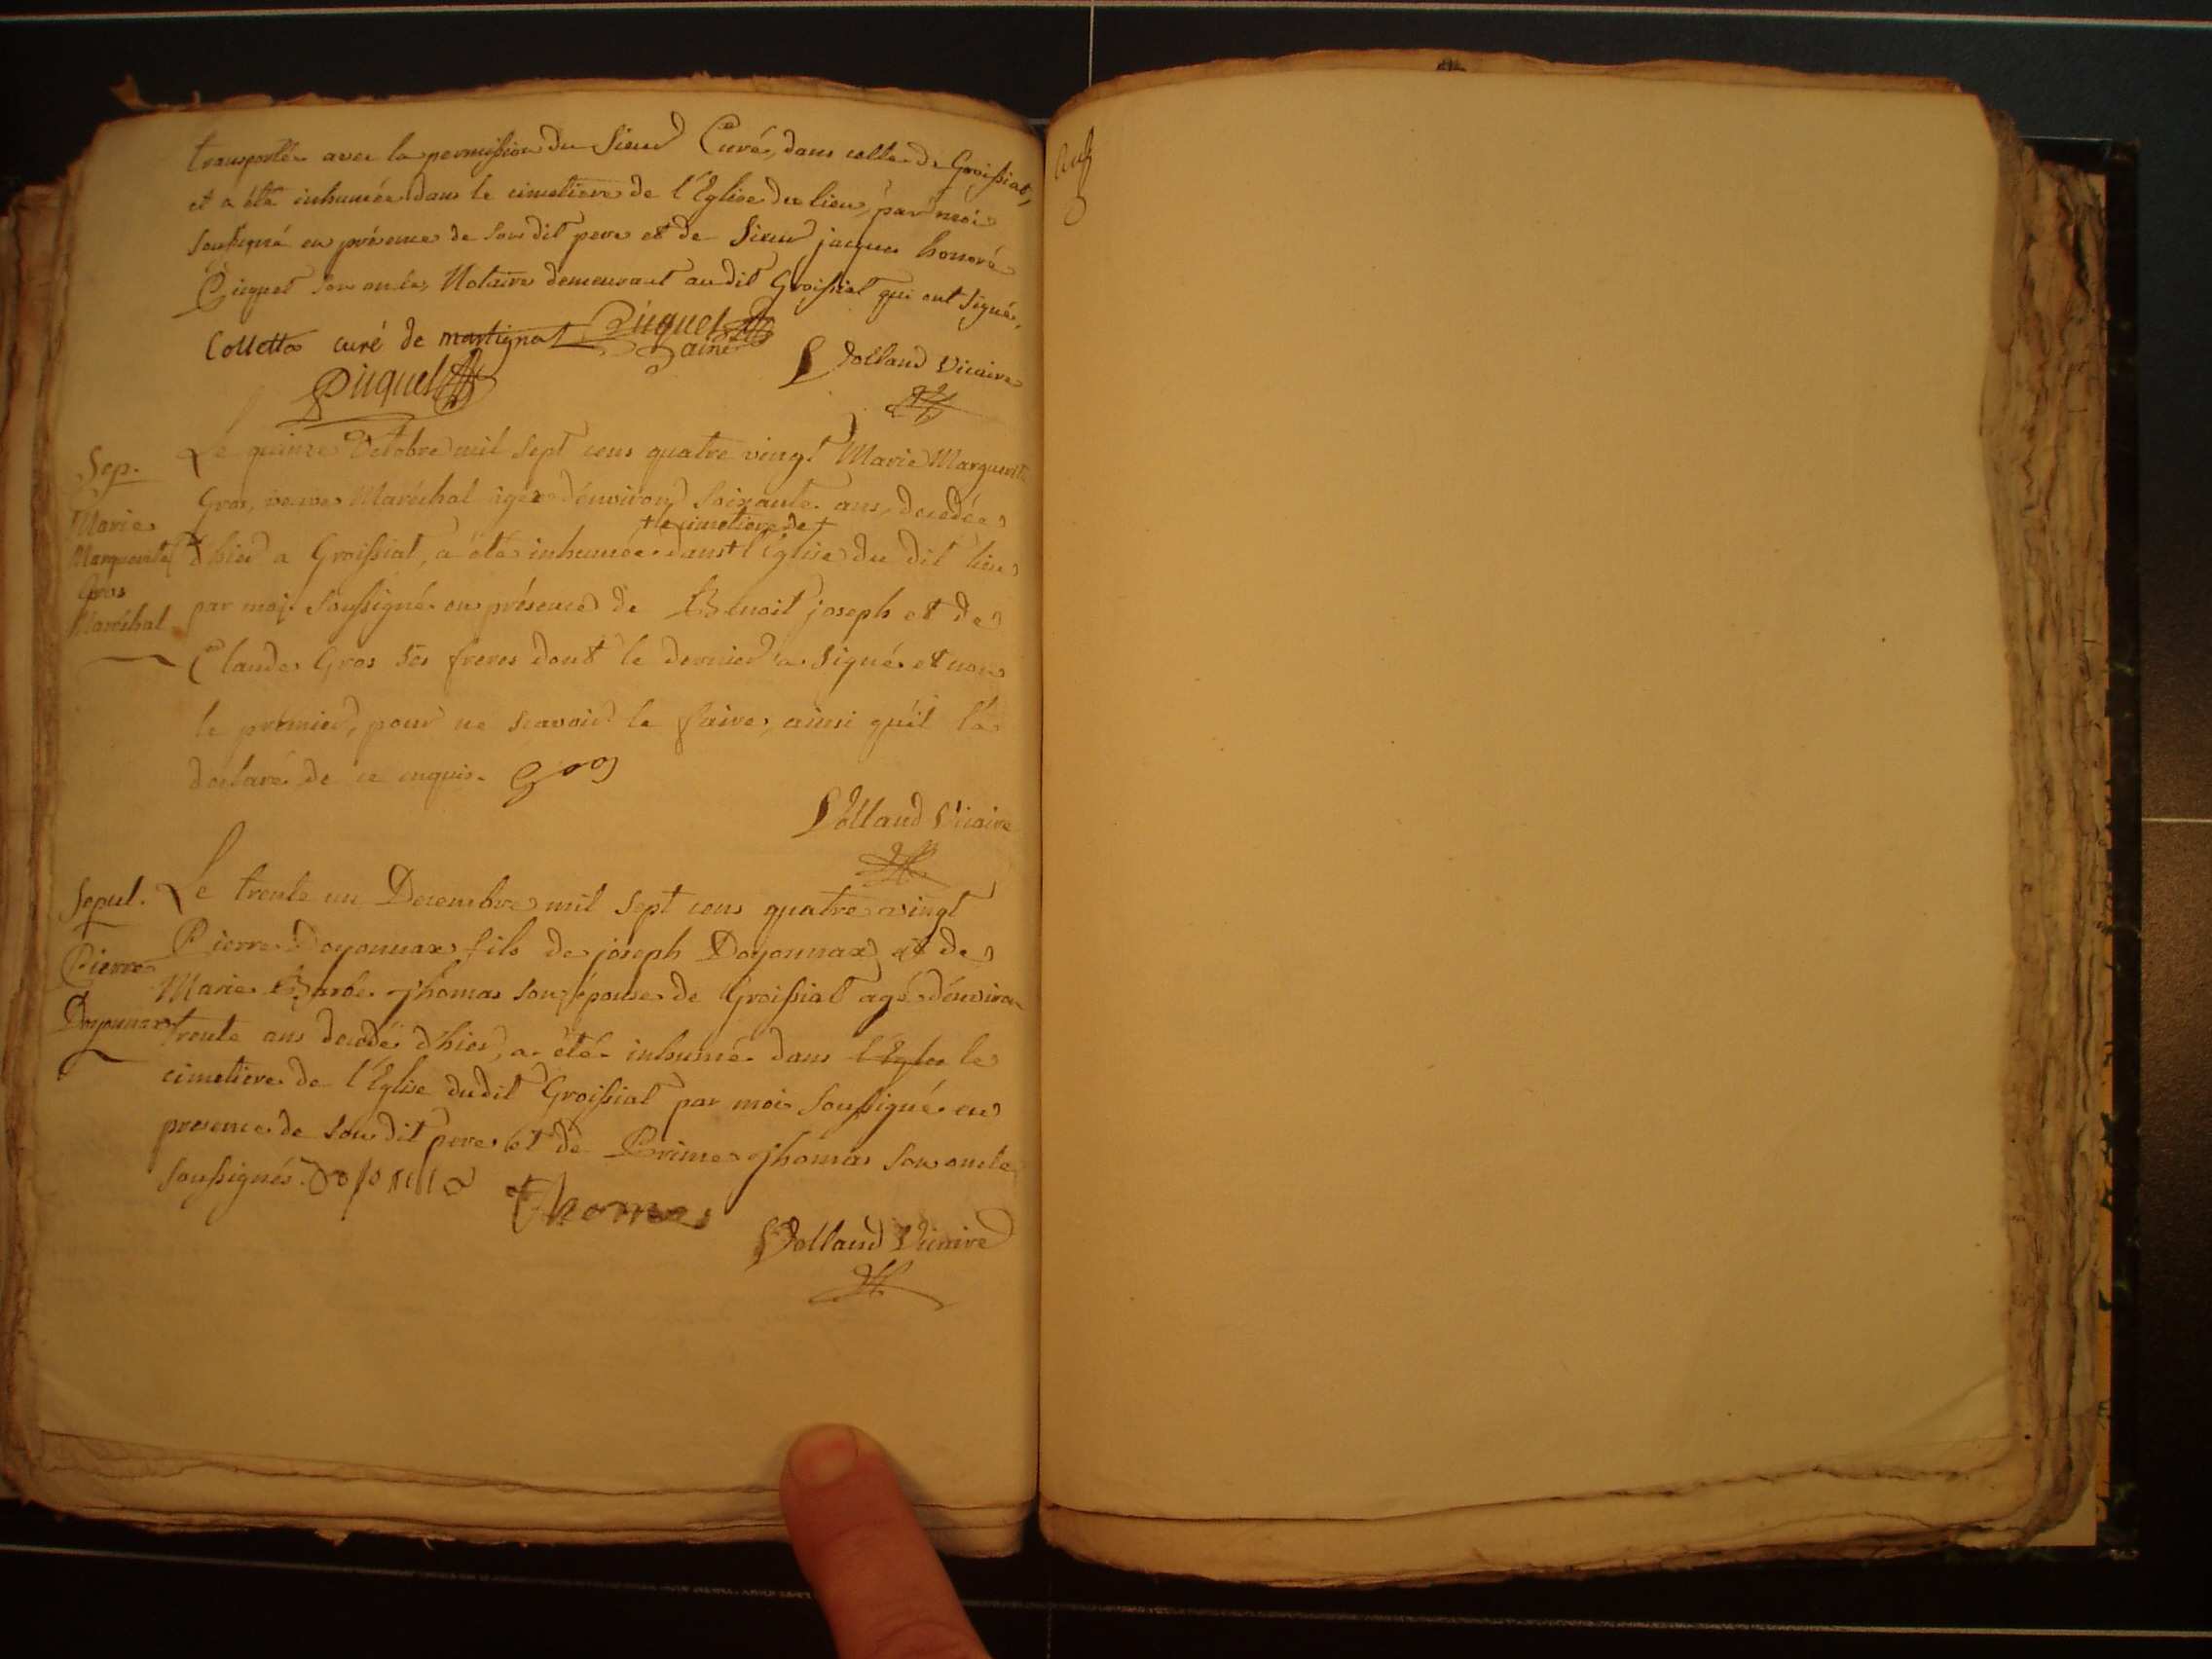 transportée avec la permission du Sieur Curé, dans celle de Groissiat,
et a été inhumée dans le cimetiere de l'Eglise du lieu, par moi
soussigné en présence de son dit pere et de Sieur jacques honoré
Picquet son oncle, Notaire demeurant audit Groissiat qui ont signé,
Collette curé de martignat Picquet
ainé
Rolland Vicaire
Picquet
Sep.
Marie
Marguerite
Gros
Maréchal
Le quinze Octobre mil sept cens quatre vingt Marie Marguerite
Gros, veuve Maréchal agée d'environ soixante ans, decedée
+ le cimetiere de +
d'hier a Groissiat, a été inhumée dans + l'Eglise du dit lieu
par moi soussigné en présence de Benoit joseph et de
Claude Gros ses freres dont le dernier a signé et non
le premier, pour ne scavoir le faire, ainsi qu'il l'a
declaré de ce enquis. Gros
Rolland Vicaire
Sepul.
Pierre
Doyonnax
Le trente un Decembre mil sept cens quatre vingt
Pierre Doyonnax fils de joseph Doyonnax et de
Marie Barbe Thomas son épouse de Groissiat agé d'environ
trente ans decedé d'hier, a été inhumé dans l'Eglise le
cimetiere de l'Eglise dudit Groissiat par moi soussigné en
presence de son dit pere et de Prime Thomas son oncle
soussignés.
Thomas
Rolland Vicaire